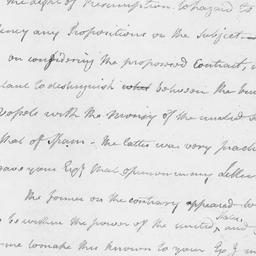 the degree of Presumption to hazard to
ency any Propositions on the subject.
on considering the proposed Contract,
to distinguish what between the
with the Money of the united
that of Spain. The latter was very
gave your Exy that opinion in my Letter
The former on the contrary appeared
to be within the power of the united States, and
me to make this known to your Exy